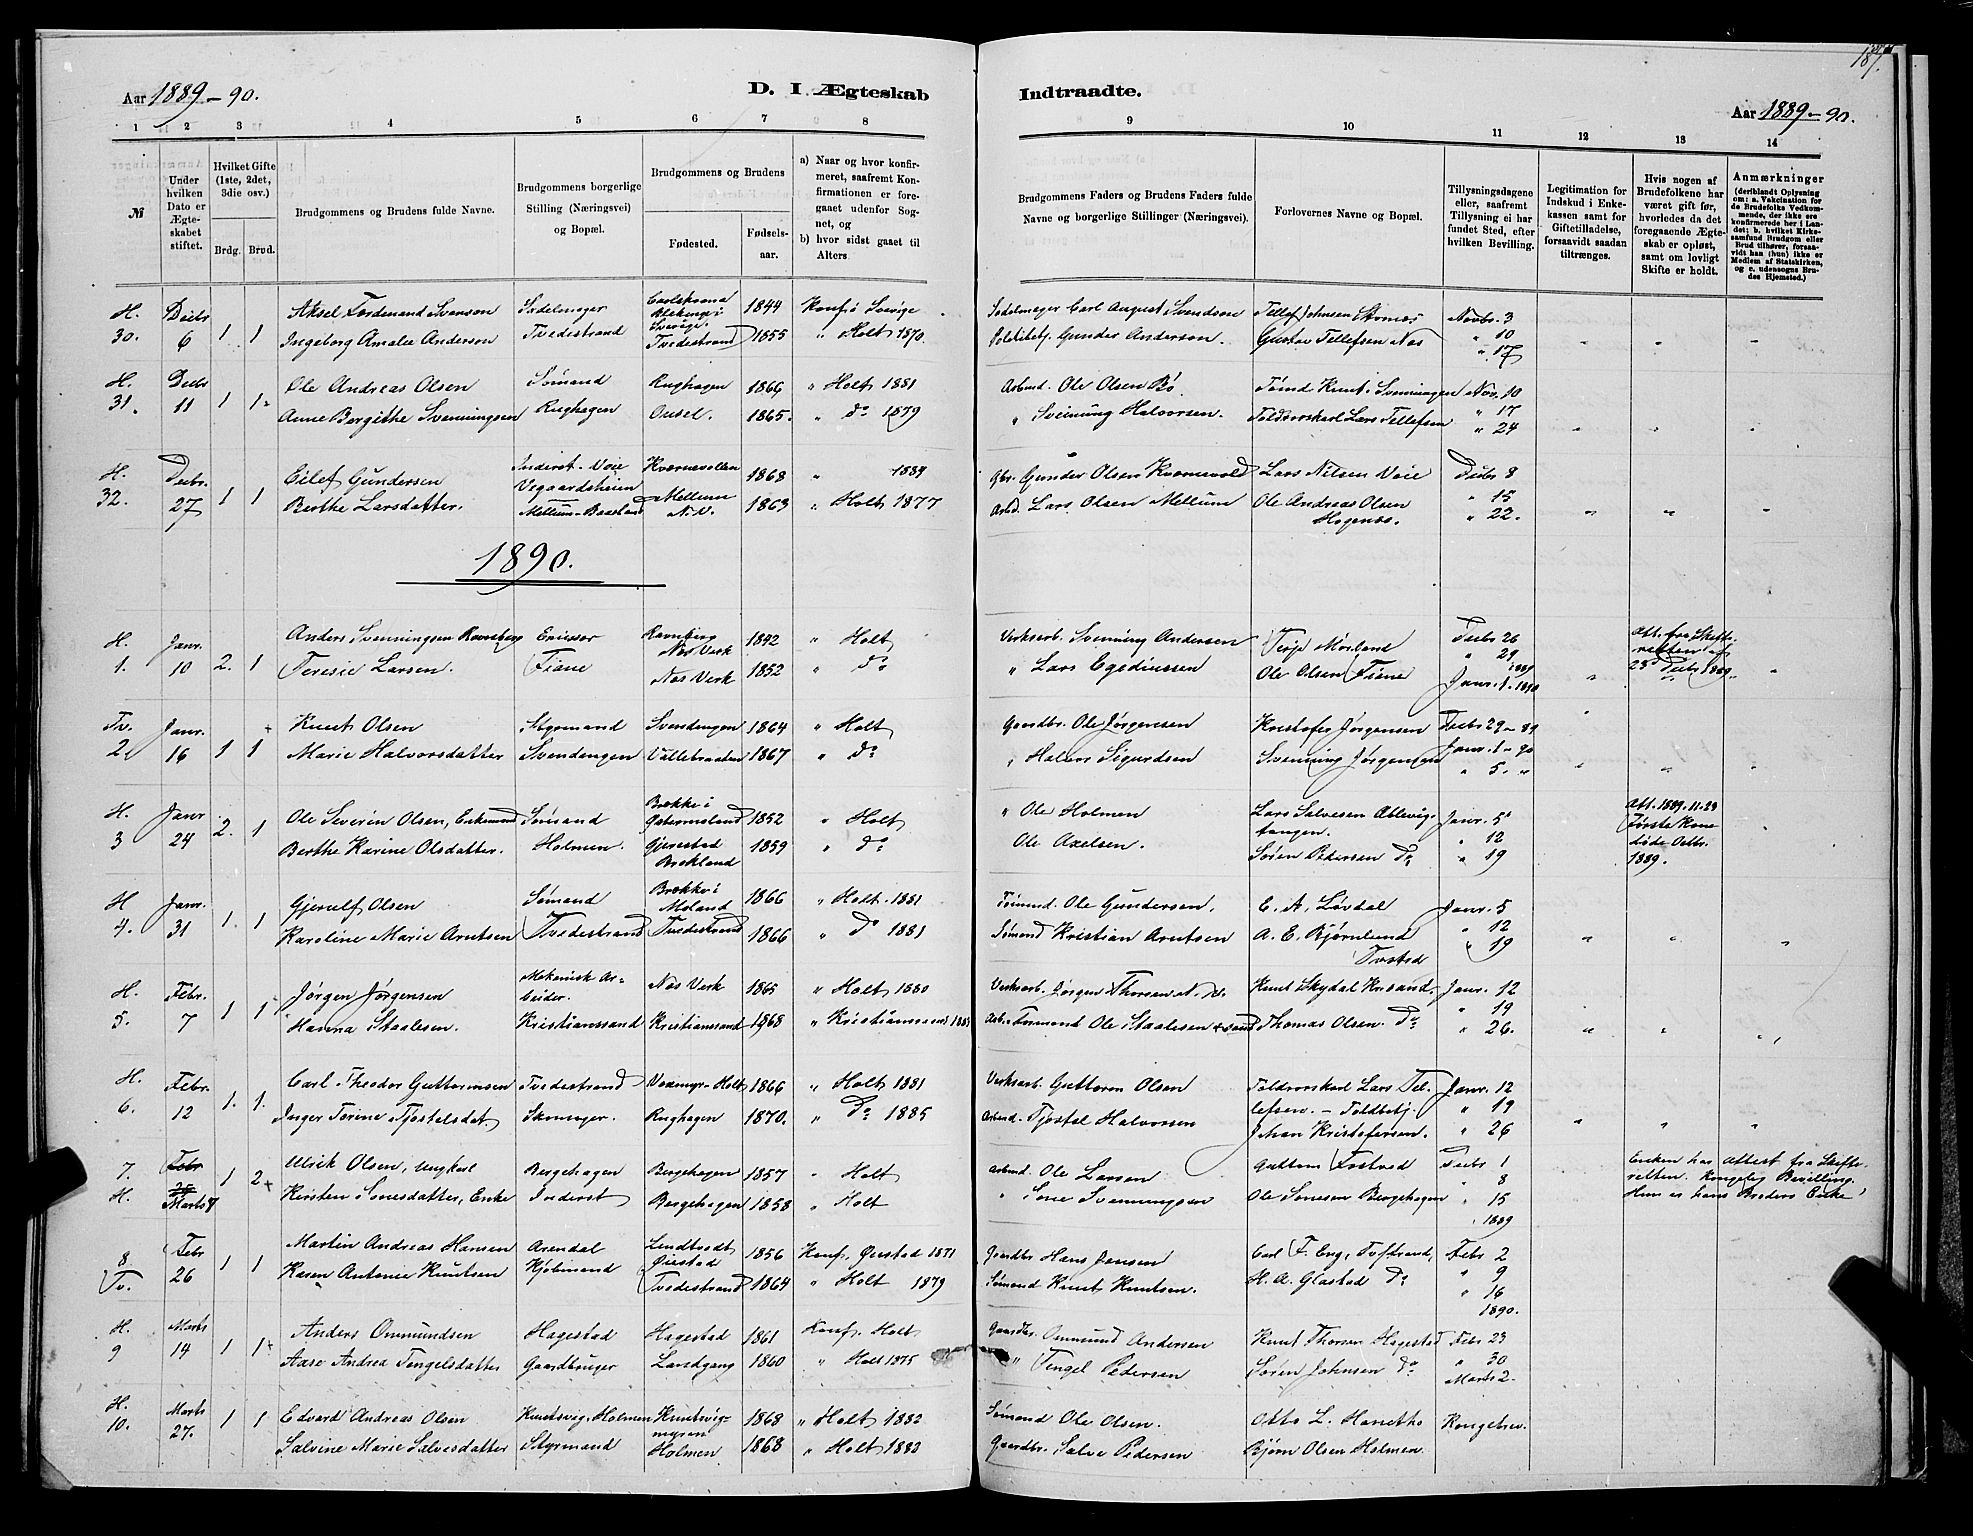 187.
Aar 1889-90.
D. I. Ægteskab
Indtraadte.
Aar 1889-90.
1 2 3 4 5 6 7 8
9 10 11 12 13 14
№
Under hvilken Dato er Ægteskabet stiftet.
Hvilket Gifte (1ste, 2det, 3die osv.)
Brdg. Brud.
Brudgommens og Brudens fulde Navne.
Brudgommens borgerlige Stilling (Næringsvei) og Bopæl.
Brudgommens og Brudens
Fødested.
Fødselsaar.
a) Naar og hvor konfirmeret, saafremt Konfirmationen er foregaaet udenfor Sognet, og
b) hvor sidst gaaet til Alters.
Brudgommens Faders og Brudens Faders fulde Navne og borgerlige Stillinger (Næringsvei).
Forlovernes Navne og Bopæl.
Tillysningsdagene eller, saafremt Tillysning ei har fundet Sted, efter hvilken Bevilling.
Legitimation for Indskud i Enkekassen samt for Giftetilladelse, forsaavidt saadan tiltrænges.
Hvis nogen af Brudefolkene har været gift før, hvorledes da det foregaaende Ægteskab er opløst, samt om lovligt Skifte er holdt.
Anmærkninger
(deriblandt Oplysning om: a. Vakcination for de Brudefolks Vedkommende, der ikke ere konfirmerede her i Landet; b. hvilket Kirkesamfund Brudgom eller Brud tilhører, forsaavidt han (hun) ikke er Medlem af Statskirken, og c. udensogns Brudes Hjemsted.)
H. Decbr Aksel Ferdenand Svenson Sadelmager Carlskrona Blekinge i Sverige 1844 Konf. i Sverige Sadelmager Carl August Svendson Tellef Johnsen Novbr. 3
30. 6 1 1 Ingeborg Amalie Anderson Tvedestrand Tvedestrand 1855 " Holt 1870. Gunder Anderson. Gustav Tellefsen Næs " 10
" 17
H. Decbr Ole Andreas Olsen Sømand Rughagen 1866 " Holt 1881 Arbmd. Ole Olsen Bø Knut Svenningsen Nov. 10
31. 11 1 1 Anne Bergithe Svenningsen Rughagen Ousel. 1865. " do 1879 " Svenning Halvorsen. Toldrorskarl Lars Tellefsen " 17
" 24
H. Decbr. Eilef Gundersen Inderst Voie Kvernevollen 1868 " 1884 Gbr. Gunder Olsen Kvernevold Lars Nilsen Voie Decbr 8
32. 27 1 1 Berthe Larsdatter. Vegaardsheien Mellum N.V. 1863 " Holt 1877 Arbd. Lars Olsen Mellum Ole Andreas Olsen " 15
Hagenæs. " 22.
1890.
H. Janr. Anders Svenningsen Ravnberg Fiane Ravnberg Næs Verk 1842 " Holt Verksarb. Svenning Andersen Terje Mørland Decbr 26 Att. fra Skifte-
1. 10 2. 1 Teresie Larsen. Næs Verk 1852 " do " Lars Egedinssen Ole Olsen Fiane " 29 1889 retten af
Janr. 1. 1890 Decbr 1889.
Tv. Janr. Knut Olsen Styrmand Svendengen 1864 " Holt Gaardbr. Ole Jørgensen Kristofer Jørgensen Decbr 29-89
2. 16 1 1 Marie Halvorsdatter Svendengen Vallebraaten 1867 " do " Halvor Sigurdsen Svenning Jørgensen Janr. 1-90
" 5. "
H. Janr Ole Severin Olsen, Enkemand Sømand Brække i Østermoland 1852 " Holt " Ole Holmen Lars Salvesen Janr. 5 Att. 1889.11.29
3 24 2. 1 Berthe Karine Olsdatter. Holmen. Gjerestad Brokland 1859 " do Ole Axelsen. tangen. " 12 Første Kone
Søren Pedersen do " 19 døde Octbr. 1889.
H Janr. Gjerulf Olsen Sømand Brække i Moland 1866 " Holt. 1881 Tømmd. Ole Gundersen. E. A. Løvdal Janr. 5
4. 31 1. 1 Karoline Marie Arntsen Tvedestrand Tvedestrand 1866 " do 1881 Sømand Kristian Arntsen A. E. Bjørnlund " 12
" 19
H. Febr. Jørgen Jørgensen Mekanisk Arbeider. Næs Verk 1865 " Holt 1880 Verksarb. Jørgen Thorsen N. V. Knut Skydal Krisand. Janr. 12
5. 7 1 1 Hanna Staalesen. Kristianssand Kristianssand 1868 " Kristianssand Ole Staalesen Thomas Olsen do " 19
" 26.
H. Febr. Carl Theodor Guttormsen Tvedestrand Voxmyr-Holt 1866 " Holt 1881 Verksarb. Guttorm Olsen Toldrorskarl Lars Tel- Janr. 12
6. 12 1. 1. Inger Torine Tjostelsdat. Skomager. Rughagen 1870. " do 1885 Arbmd. Tjostel Halvorsen lefsen. - Toldbetj. " 19
Johan Kristofersen. " 26
7. Febr 1 2 Ulrik Olsen, Ungkarl Bergehagen Bergehagen 1857 " Holt Arbmd. Ole Larsen Guttorm Tostved Decbr 1 Enken har Attest fra Skifte-
H. Marts 7 Kirsten Sonesdatter, Enke Inderst Bergehagen 1858 " Holt " Sone Svenningsen Ole Sonesen Bergehagen " 8 retten. Kongelig Bevilling.
" 15 Hun er hans Broders Enke
1889
8 Febr Martin Andreas Hansen Arendal Øiestad 1856 Konf. Øiestad 1871 Gaardbr. Hans Jensen Carl F. Eng, Tvstrand, Febr 2
Tv. 26 1 1 Karen Antonie Knutsen Kjøbmand Tvedestrand 1864 " Holt 1879 Sømand Knut Knutsen. H. A. Glastad do " 9
" 16
1890.
H. Marts Anders Ommundsen Hagestad Hagestad 1861 Konf. Holt Gaardbr. Ommund Andersen Knut Thorsen Hagestad Febr 23
9 14 1 1 Aase Andrea Tengelsdatter Gaardbruger Landgang 1860 " Holt 1875 " Tengel Pedersen Søren Johnsen do " 30
Marts 2.
H. Marts Edvard Andreas Olsen Knutsvig, Holmen Knutsvigmyren 1868 " Holt 1882 Sømand Ole Olsen. Otto L. Hanetho Kongebrev.
10. 27. 1 1 Salvine Marie Salvesdatter Styrmand Holmen 1868 " Holt 1883 Gaardbr. Salve Pedersen Bjørn Olsen Holmen.